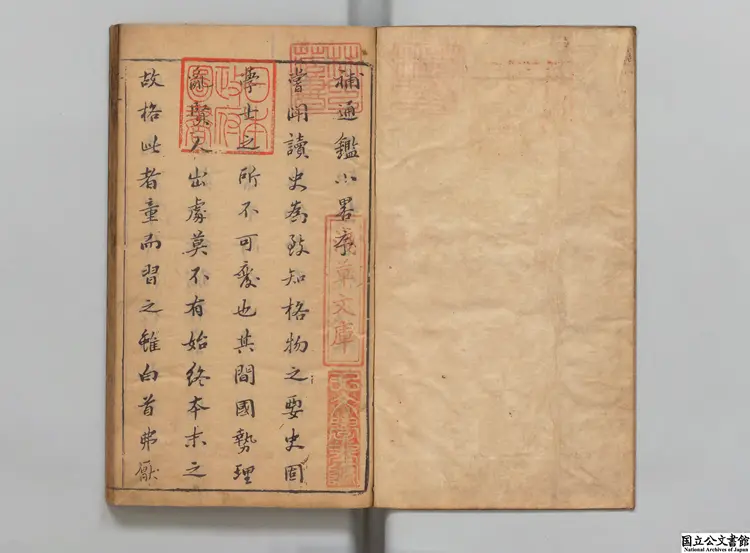 補通鑑小畧序
嘗聞讀史為致知格物之要史固
學士之所不可廢也其間國勢理
亂賢人出處莫不有始終本末之
故格此者童而習之雖白首弗厭
日本
政府
圖書
文庫
国立公文書館
National Archives of Japan